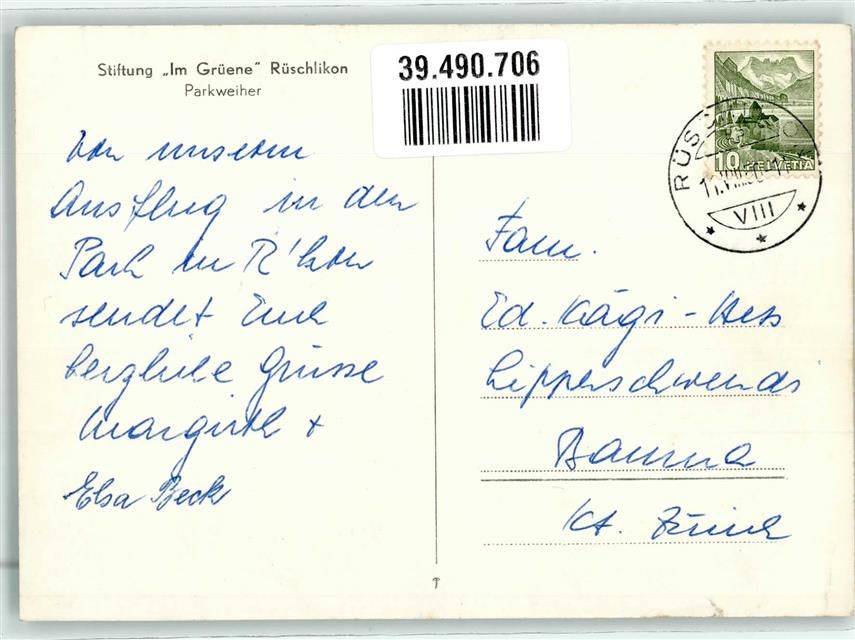 Stiftung „Im Grüene" Rüschlikon
Parkweiher
39.490.706
Von unserem
Ausflug in den
Park in R'kon
sendet Euch
herzliche Grüsse
Margirth +
Elsa Beck
10 HELVETIA
VIII
Fam.
Ed. Kägi-Hess
Lipperschwendi
Bauma
Kt. Zürich